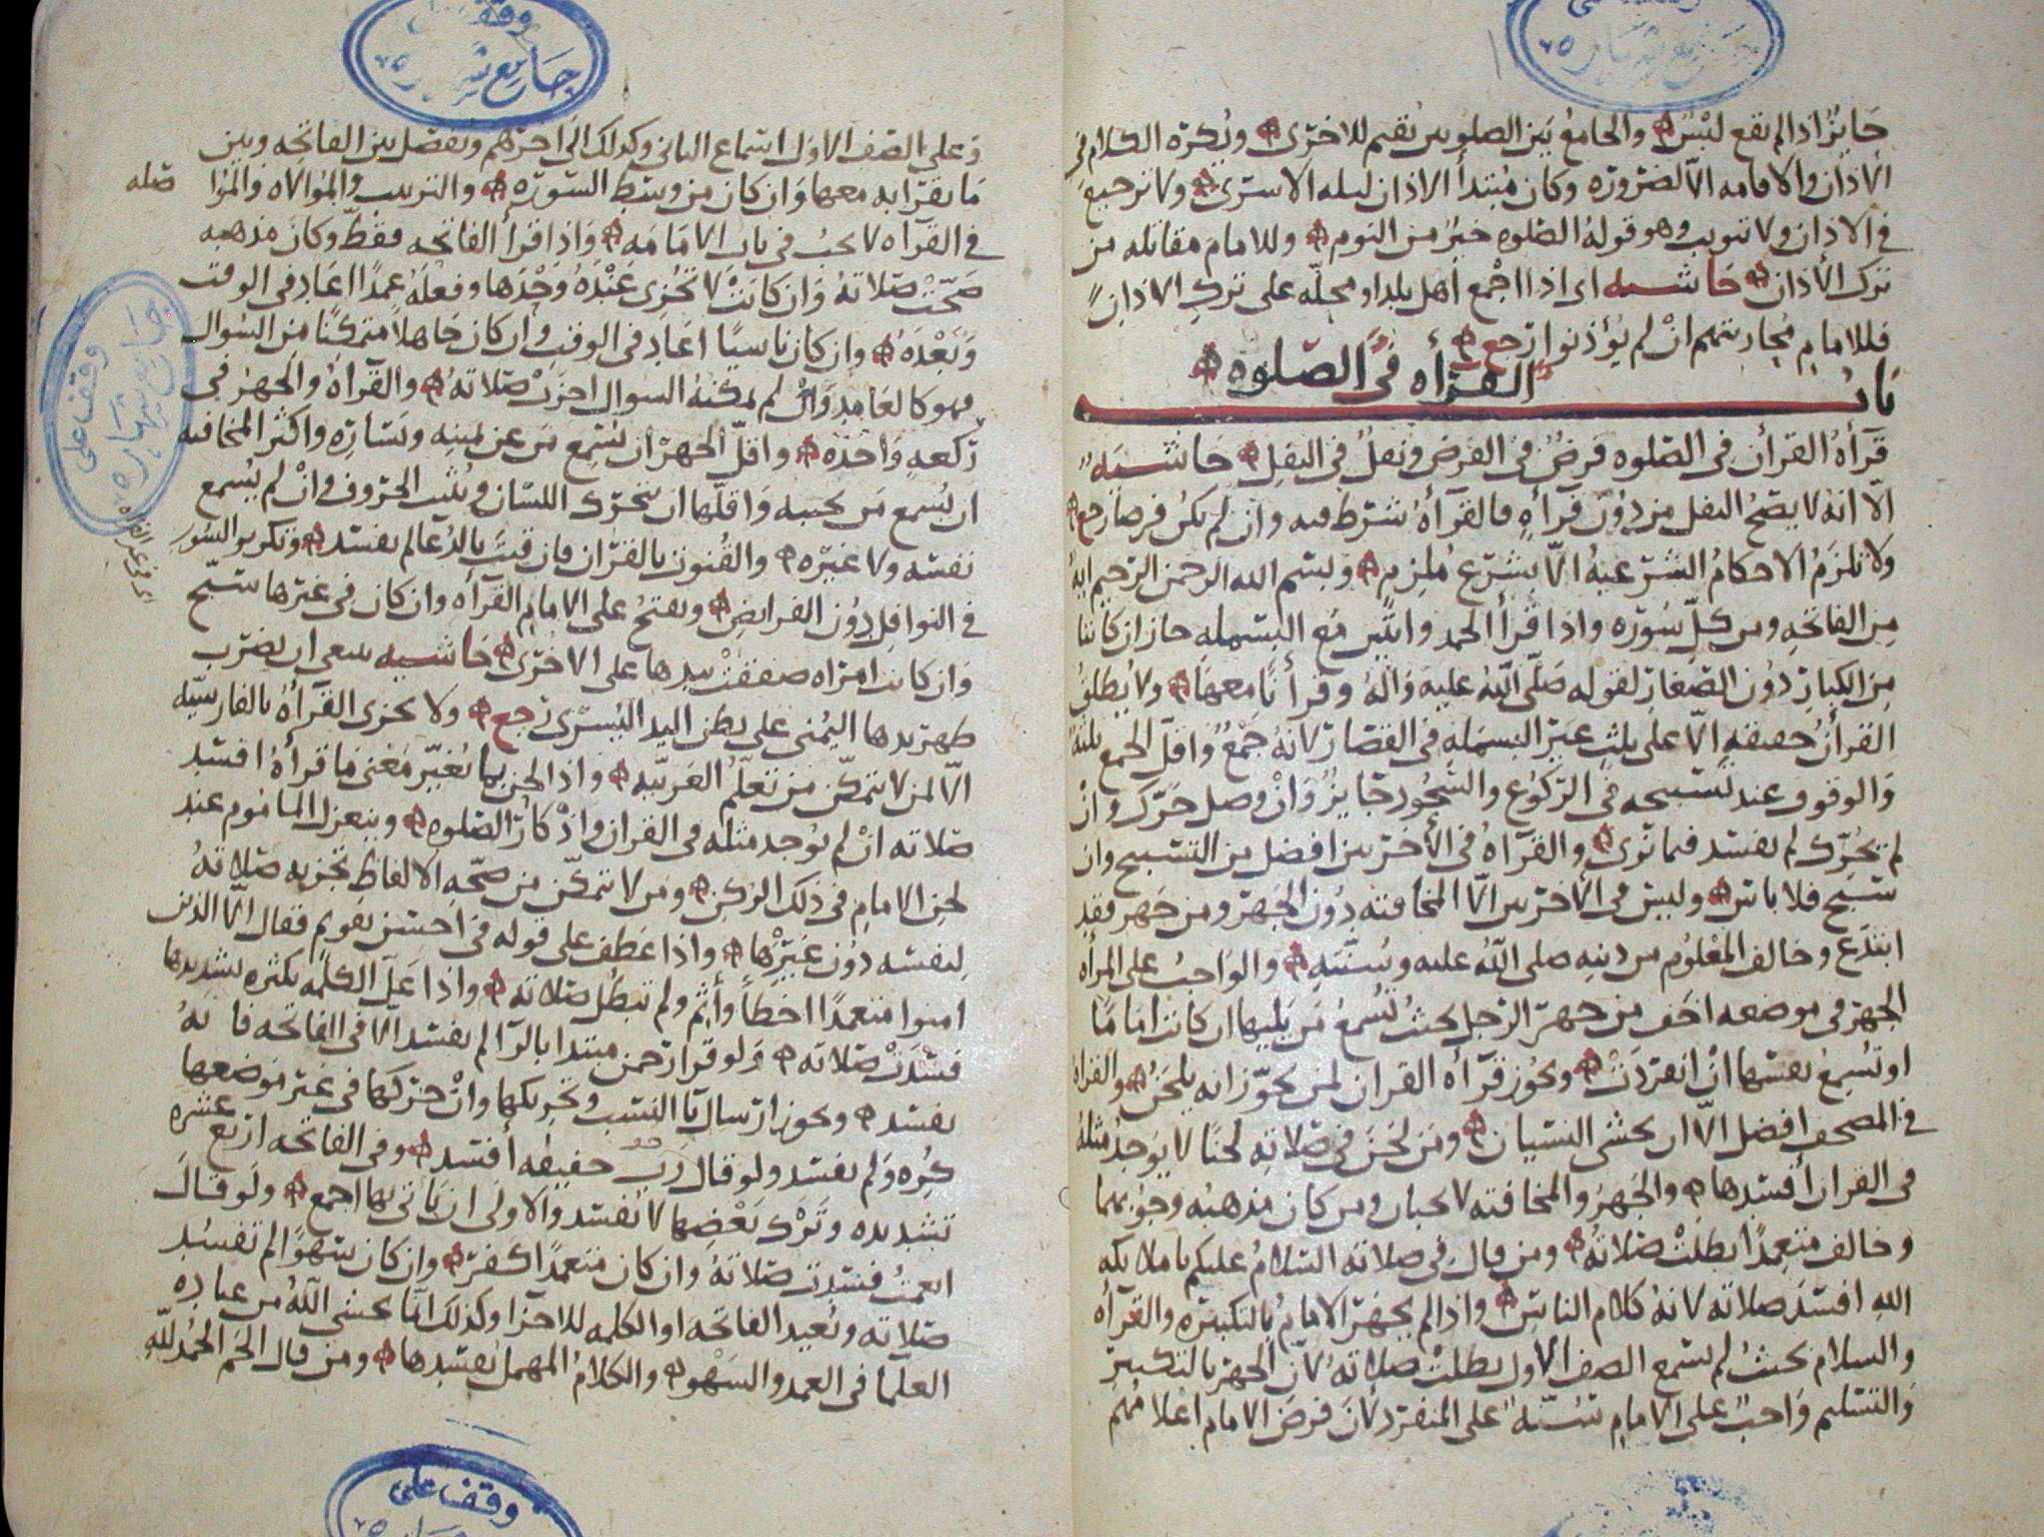 جايز اذا لم يقع لبس والجامع بين الصلوتين يقيم للاخرى ويكره الكلام في
الاذان والاقامه الا لضروره وكان مبتدأ الاذان ليله الاسرى ولا ترجيع
في الاذان ولا تثويب وهو قوله الصلوه خير من النوم وللامام مقاتله من
ترك الاذان حاشيه اى اذا اجمع اهل بلد او محله على ترك الاذان
فللامام محاربتهم ان لم يؤذنوا رجع
باب القرأه في الصلوه
قرأة القرأن في الصلوه فرض في الفرض ونفل في النفل حاشيه
الا انه لا يصح النفل من دون قرأه فالقرأه شرط فيه وان لم تكن فرضا رجع
ولا تلزم الاحكام الشرعيه الا بشرع ملزم وبسم الله الرحمن الرحيم ايه
من الفاتحه ومن كل سوره واذا قرأ الحمد وايتين مع البسمله جاز ان كانتا
من الكبار دون الصغار لقوله صلى الله عليه واله وقرأنا معها ولا يطلق
القرأن حقيقه الا على ثلث غير البسمله في القصار لانه جمع واقل الجمع ثلثه
والوقوف عند تسبيحه في الركوع والسجود جايز وان وصل حرك وان
لم يحرك لم يفسد فيما نرى والقرأه في الأخرتين افضل من التسبيح وان
سبح فلا باس وليس في الأخرتين الا المخافته دون الجهر ومن جهر فقد
ابتدع وخالف المعلوم من دينه صلى الله عليه وسنته والواجب على المرأه
الجهر في موضعه اخف من جهر الرجل بحيث تسمع من يليها ان كانت اماما
او تسمع نفسها ان انفردت ويجوز قرأه القران لمن يجوز انه يلحن والقراه
في المصحف افضل الا ان يخشى النسيان ومن لحن في صلاته لحنا لا يوجد مثله
في القران أفسدها والجهر والمخافته لا يجبان ومن كان مذهبه وجوبهما
وخالف متعمدا بطلت صلاته ومن قال في صلاته السلام عليكم يا ملايكه
الله افسد صلاته لانه كلام الناس واذا لم يجهر الامام بالتكبيره والقرأه
والسلام بحيث لم يسمع الصف الاول بطلت صلاته لان الجهر بالتكبير
والتسليم واجب على الامام سنه على المنفرد لان فرض الامام اعلامهم
وعلى الصف الاول استماع الثاني وكذلك الى اخرهم ويفصل بين الفاتحه وبين
ما يقرا به معها وان كان من وسط السوره والترتيب والموالاه والموا صله
في القرآه لا يجب في باب الامامه واذا قرأ الفاتحه فقط وكان مذهبه
صحت صلاته وان كانت لا تجزى عنده وحدها وفعله عمدا اعاد في الوقت
وبعده وان كان ناسيا اعاد في الوقت وان كان جاهلا متمكنا من السوال
فهو كالعامد وان لم يمكنه السوال اجزت صلاته والقرأه والجهر في
ركعه واحده واقل الجهر ان يسمع من عن يمينه ويساره واكثر المخافته
ان يسمع من بجنبه واقلها ان يتحرك اللسان ويثبت الحروف وان لم يسمع
نفسه ولا غيره والقنوت بالقران فان قنت بالدعا لم يفسد وتكرير السور
في النوافل دون الفرايض ويفتح على الامام القرأه وان كان في غيرها سبح
وان كانت امراه صفقت بيدها على الاخرى حاشيه ينبغي ان تضرب
ظهر يدها اليمنى على بطن اليد اليسرى رجع ولا تجزى القرأه بالفارسيه
الا لمن لا يتمكن من تعلم العربيه واذا لحن بما يغير معنى ما قرأه افسد
صلاته ان لم يوجد مثله في القران واذكار الصلوه وينعزل الماموم عند
لحن الامام في ذلك الركن ومن لا يتمكن من صحه الالفاظ تجزيه صلاته
لنفسه دون غيرها واذا عطف على قوله في احسن تقويم فقال الا الذين
امنوا متعمدا اخطأ وأثم ولم تبطل صلاته واذا عل الكلمه بكثره تشديدها
فسدت صلاته ولو قرا رحمن مبتدا بالرا لم يفسد الا في الفاتحه فانه
يفسد ويجوز ارسال يا النسب وتحريكها وان حركها في غير موضعها
كره ولم يفسد ولو قال رب خفيفه أفسد وفي الفاتحه اربع عشره
تشديده وترك بعضها لا تفسد والاولى ان ياتي بها اجمع ولو قال
انعمت فسدت صلاته وان كان متعمدا كفر وان كان سهوا لم تفسد
صلاته ويعيد الفاتحه او الكلمه للاجزا وكذلك انما يخشى الله من عباده
العلما في العمد والسهو والكلام المهمل يفسدها ومن قال الحم الحمد لله
وقف على
جامع شهاره